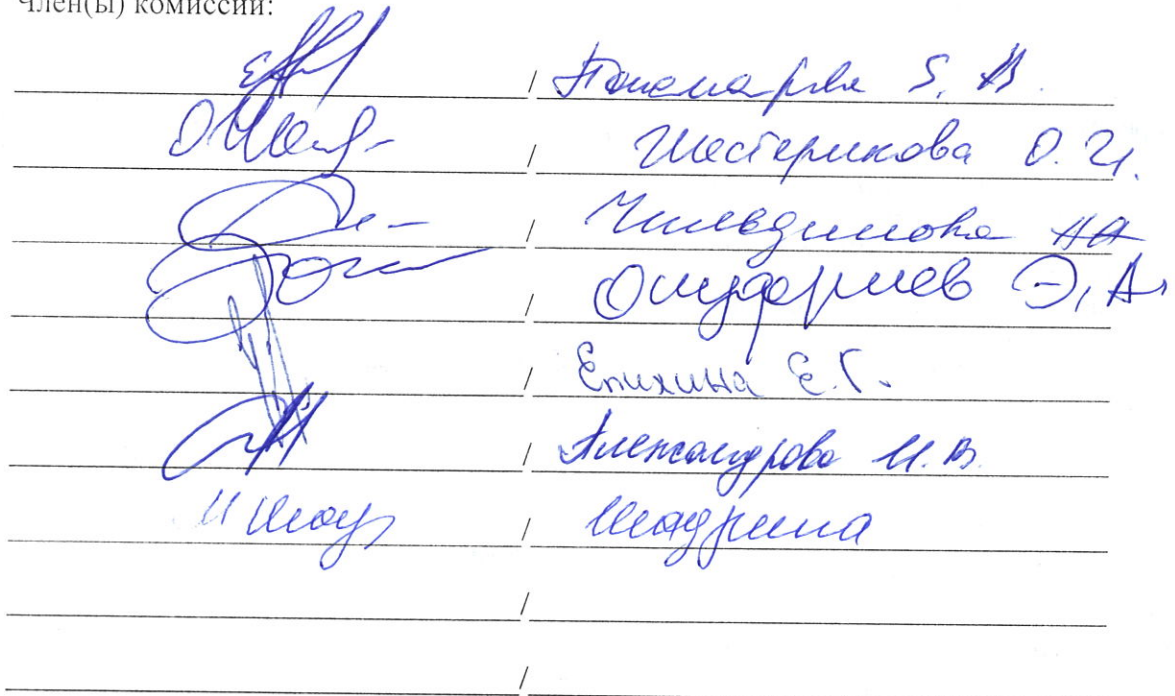 Член(ы) комиссии:
/ Пономарева Е. В.
/ Шестерикова О. И.
/ Чильдинова НА
/ Э. А.
/ Епихина Е. Г.
/ Александрова И. В.
/ Шадрина
/
/